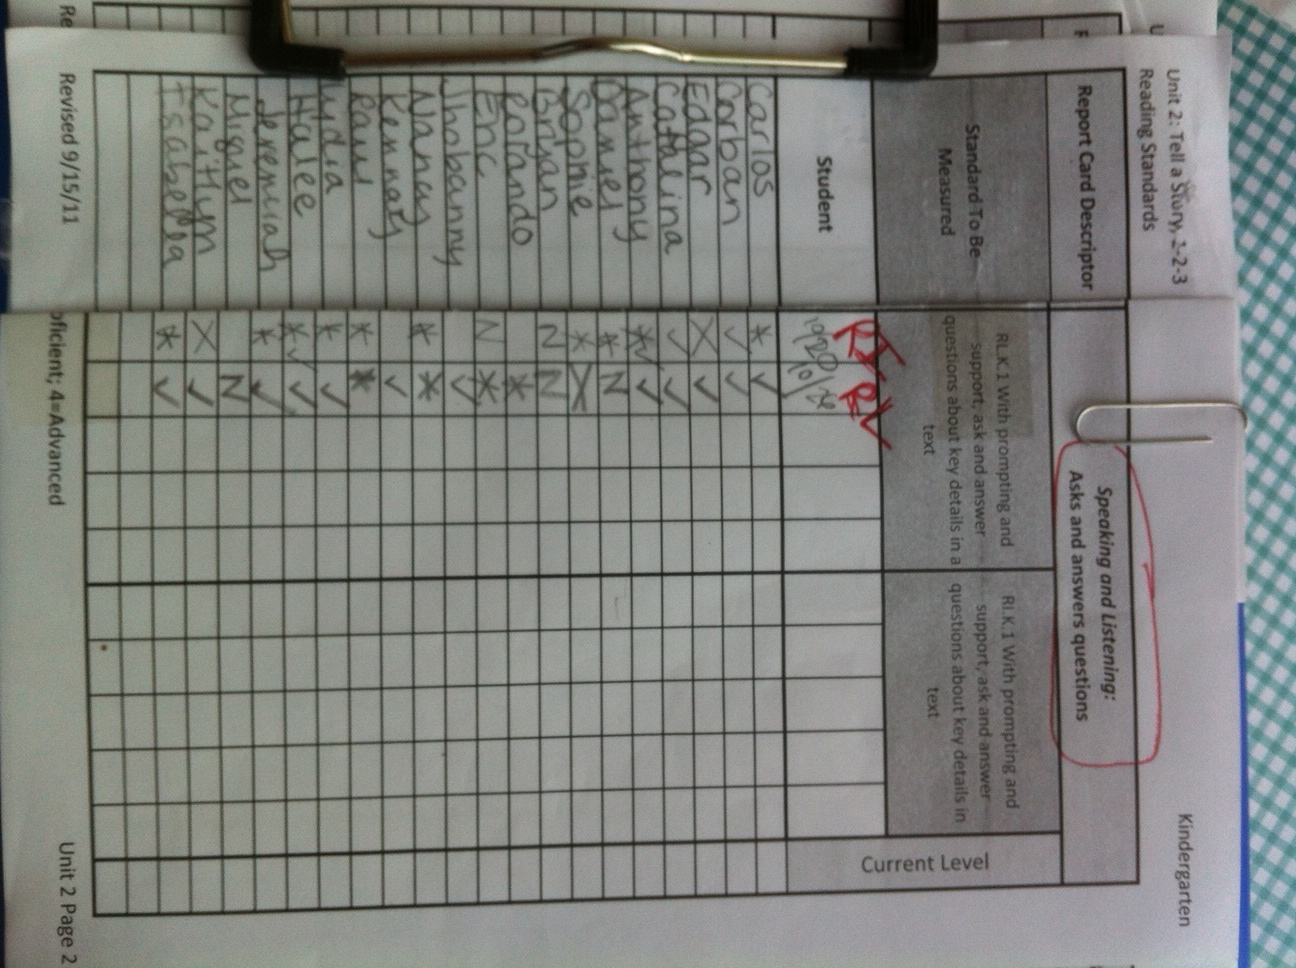 Unit 2: Tell a Story, 1-2-3
Kindergarten
Reading Standards
Report Card Descriptor
Speaking and Listening:
Asks and answers questions
Standard To Be
Measured
RL.K.1 With prompting and
support, ask and answer
questions about key details in a
text
RI.K.1 With prompting and
support, ask and answer
questions about key details in
text
Current Level
Student
RI RL
10/20 10/26
Carlos * ✓
Corban ✓ ✓
Edgar X ✓
Catalina ✓ ✓
Anthony *✓ ✓
Daniel * N
Sophie * X
Bryan N N
Rolando *
Eric N *
Jhobanny ✓
Nancy * *
Kennady ✓
Raul * *
Lydia * ✓
Halee *✓ ✓
Jeremiah * ✓
Miguel N
Kaitlyn X ✓
Isabella * ✓
Revised 9/15/11
oficient; 4=Advanced
Unit 2 Page 2